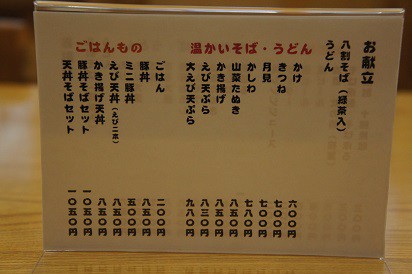 お献立
八割そば（緑茶入）
うどん
温かいそば・うどん
かけ 六〇〇円
きつね 七〇〇円
月見 七〇〇円
かしわ 七八〇円
山菜たぬき 八五〇円
かき揚げ 八五〇円
えび天ぷら 八三〇円
大えび天ぷら 九八〇円
ごはんもの
ごはん 二〇〇円
豚丼 八五〇円
ミニ豚丼 五〇〇円
えび天丼（えび二本） 八五〇円
かき揚げ天丼 八五〇円
豚丼そばセット 一〇五〇円
天丼そばセット 一〇五〇円